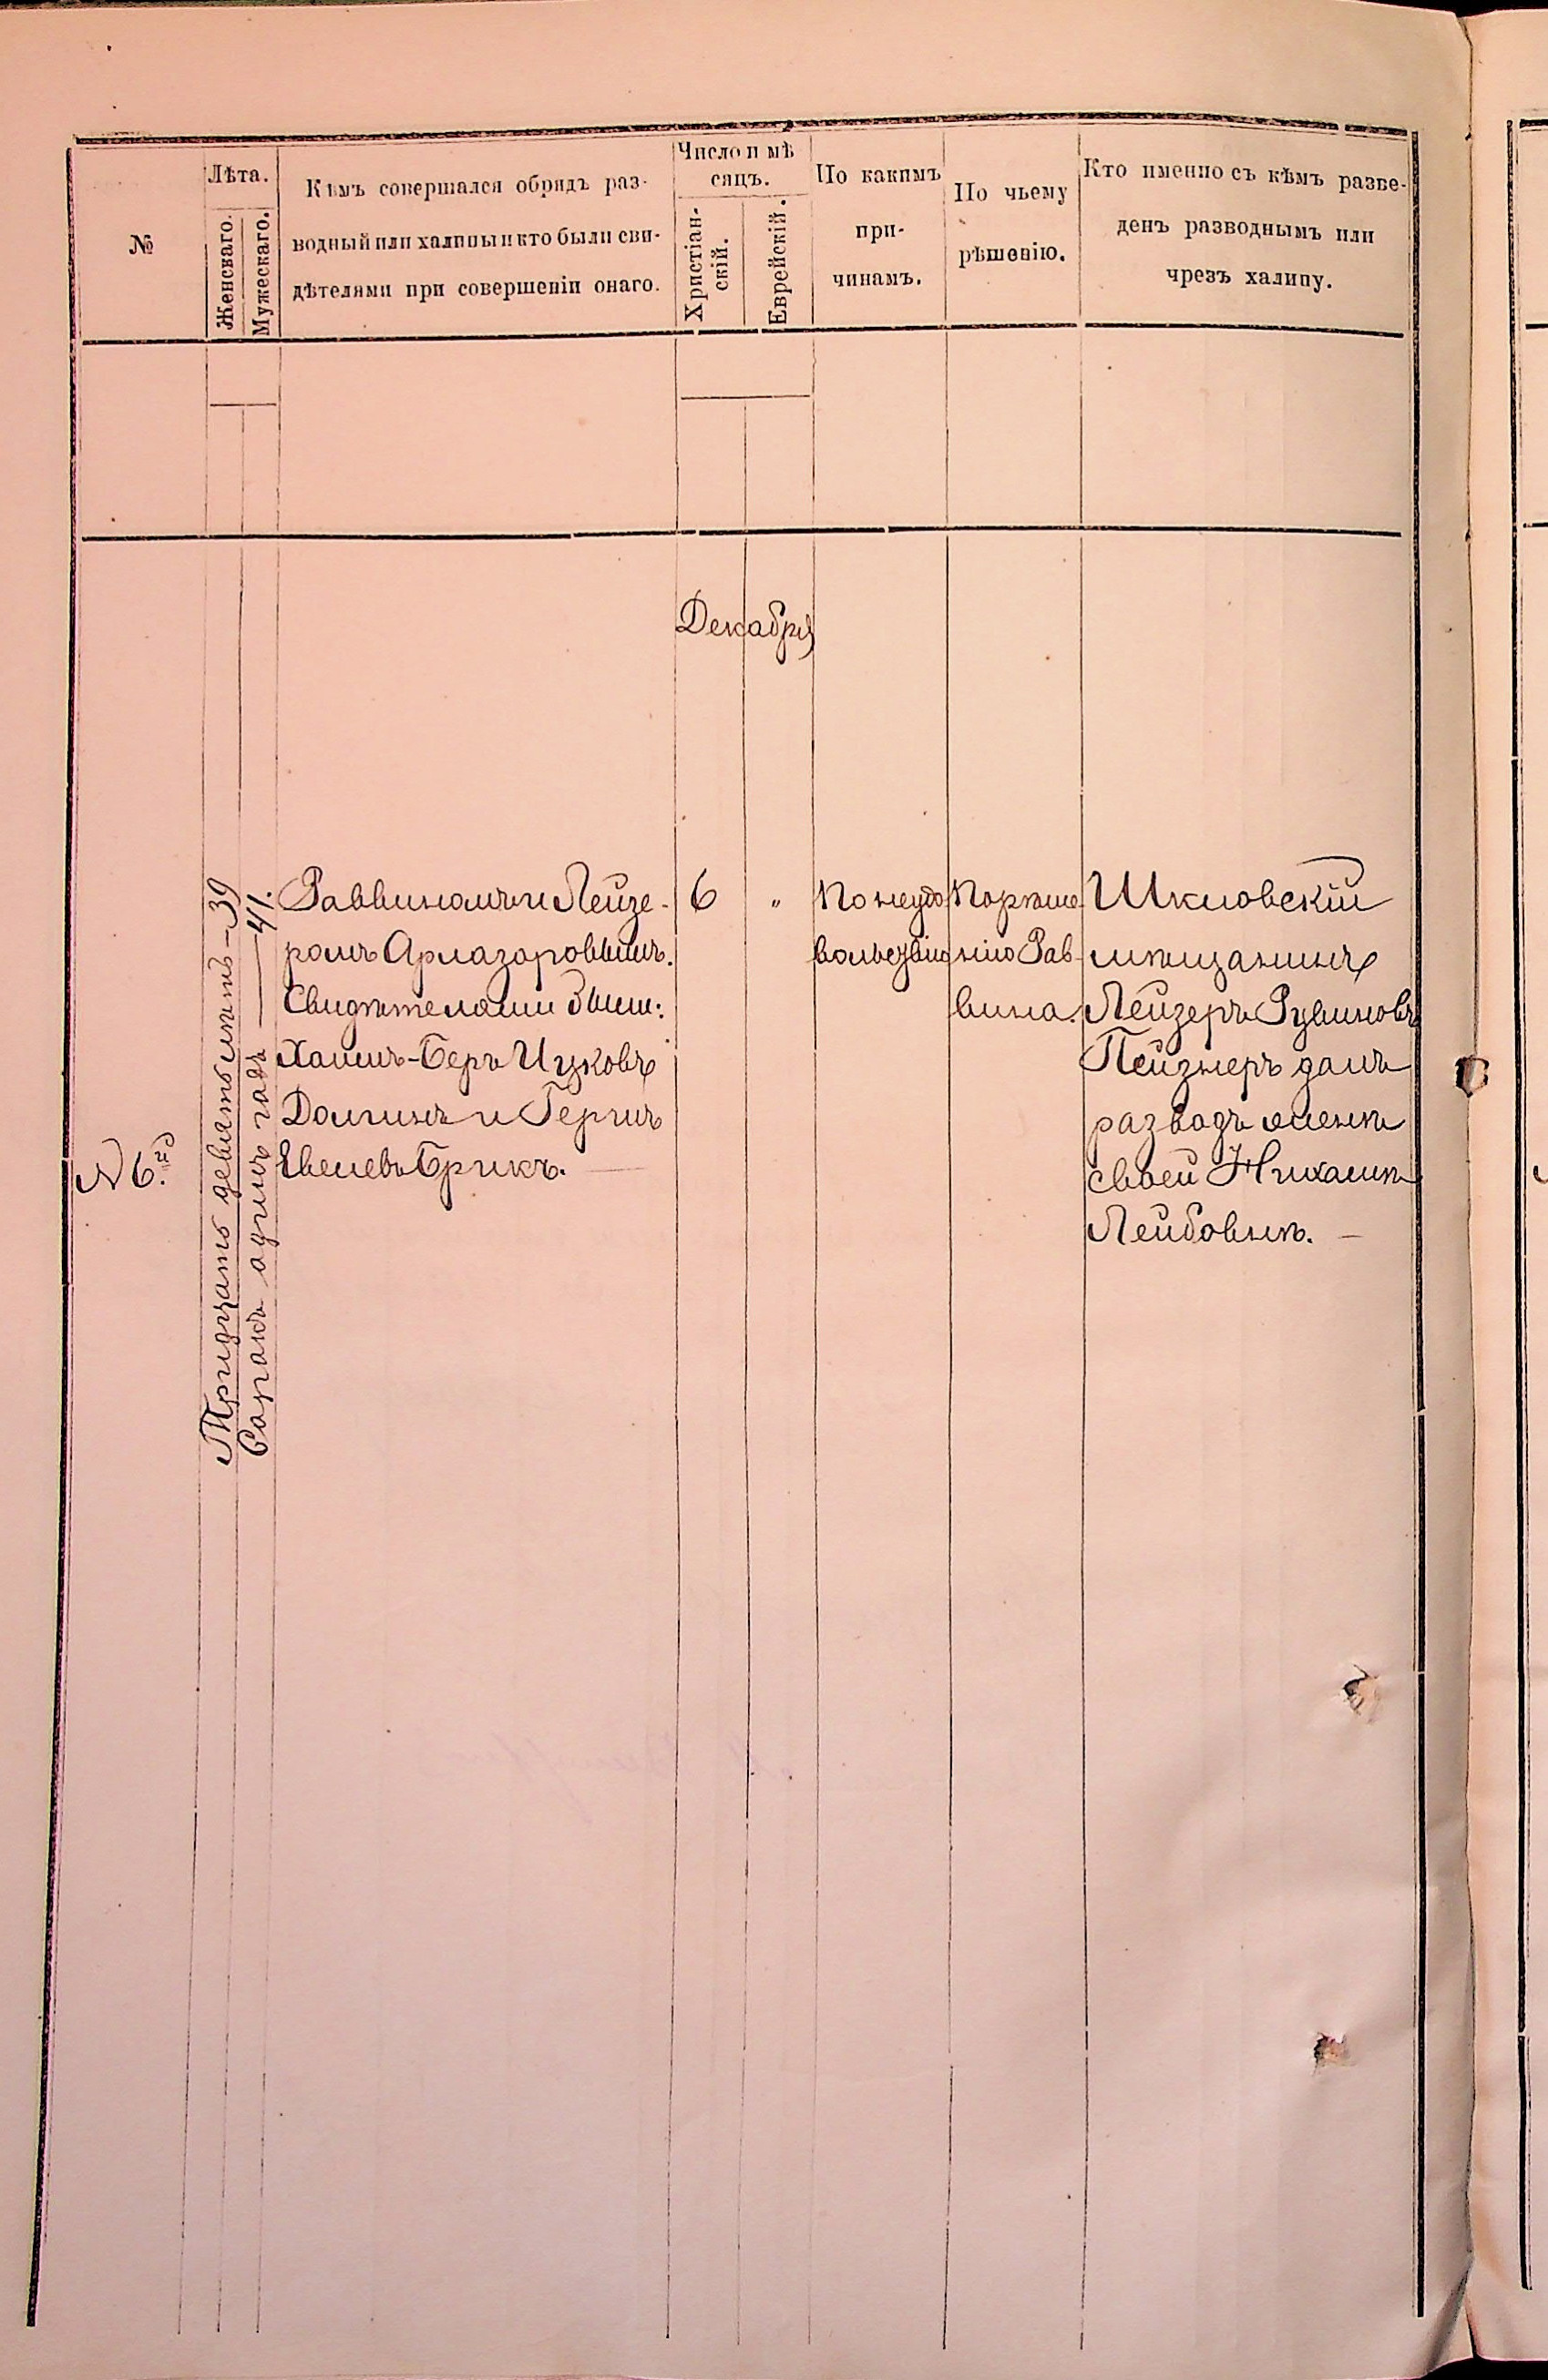 №
Лѣта.
Женскаго.
Мужескаго.
Кѣмъ совершался обрядъ раз-
водный или халицы и кто были сви-
дѣтелями при совершеніи онаго.
Число и мѣ
сяцъ.
Христіан-
скій.
Еврейскій.
По какимъ
при-
чинамъ.
По чьему
рѣшенію.
Кто именно съ кѣмъ разве-
денъ разводнымъ или
чрезъ халицу.
Декабря
№ 6.й
Тридцать девять лѣтъ - 39
Сорокъ одинъ годъ — 41.
Раввиномъ Лейзе-
ромъ Арлазоровымъ.
Свидѣтелями были:
Хаимъ-Беръ Ицковъ
Долгинъ и Герцъ
Евелевъ Брикъ.
6
"
По неудо
вольствію
По рѣше
нію Рав-
вина.
Шкловскій
мѣщанинъ
Лейзеръ Рувиновъ
Пейзнеръ далъ
разводъ женѣ
своей Нихамѣ
Лейбовнѣ. —